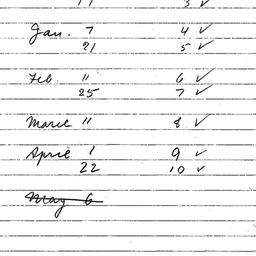 Jan. 7 4 ✓
21 5 ✓
Feb. " 6 ✓
25 7 ✓
March " 8 ✓
April 1 9 ✓
22 10 ✓
May 6